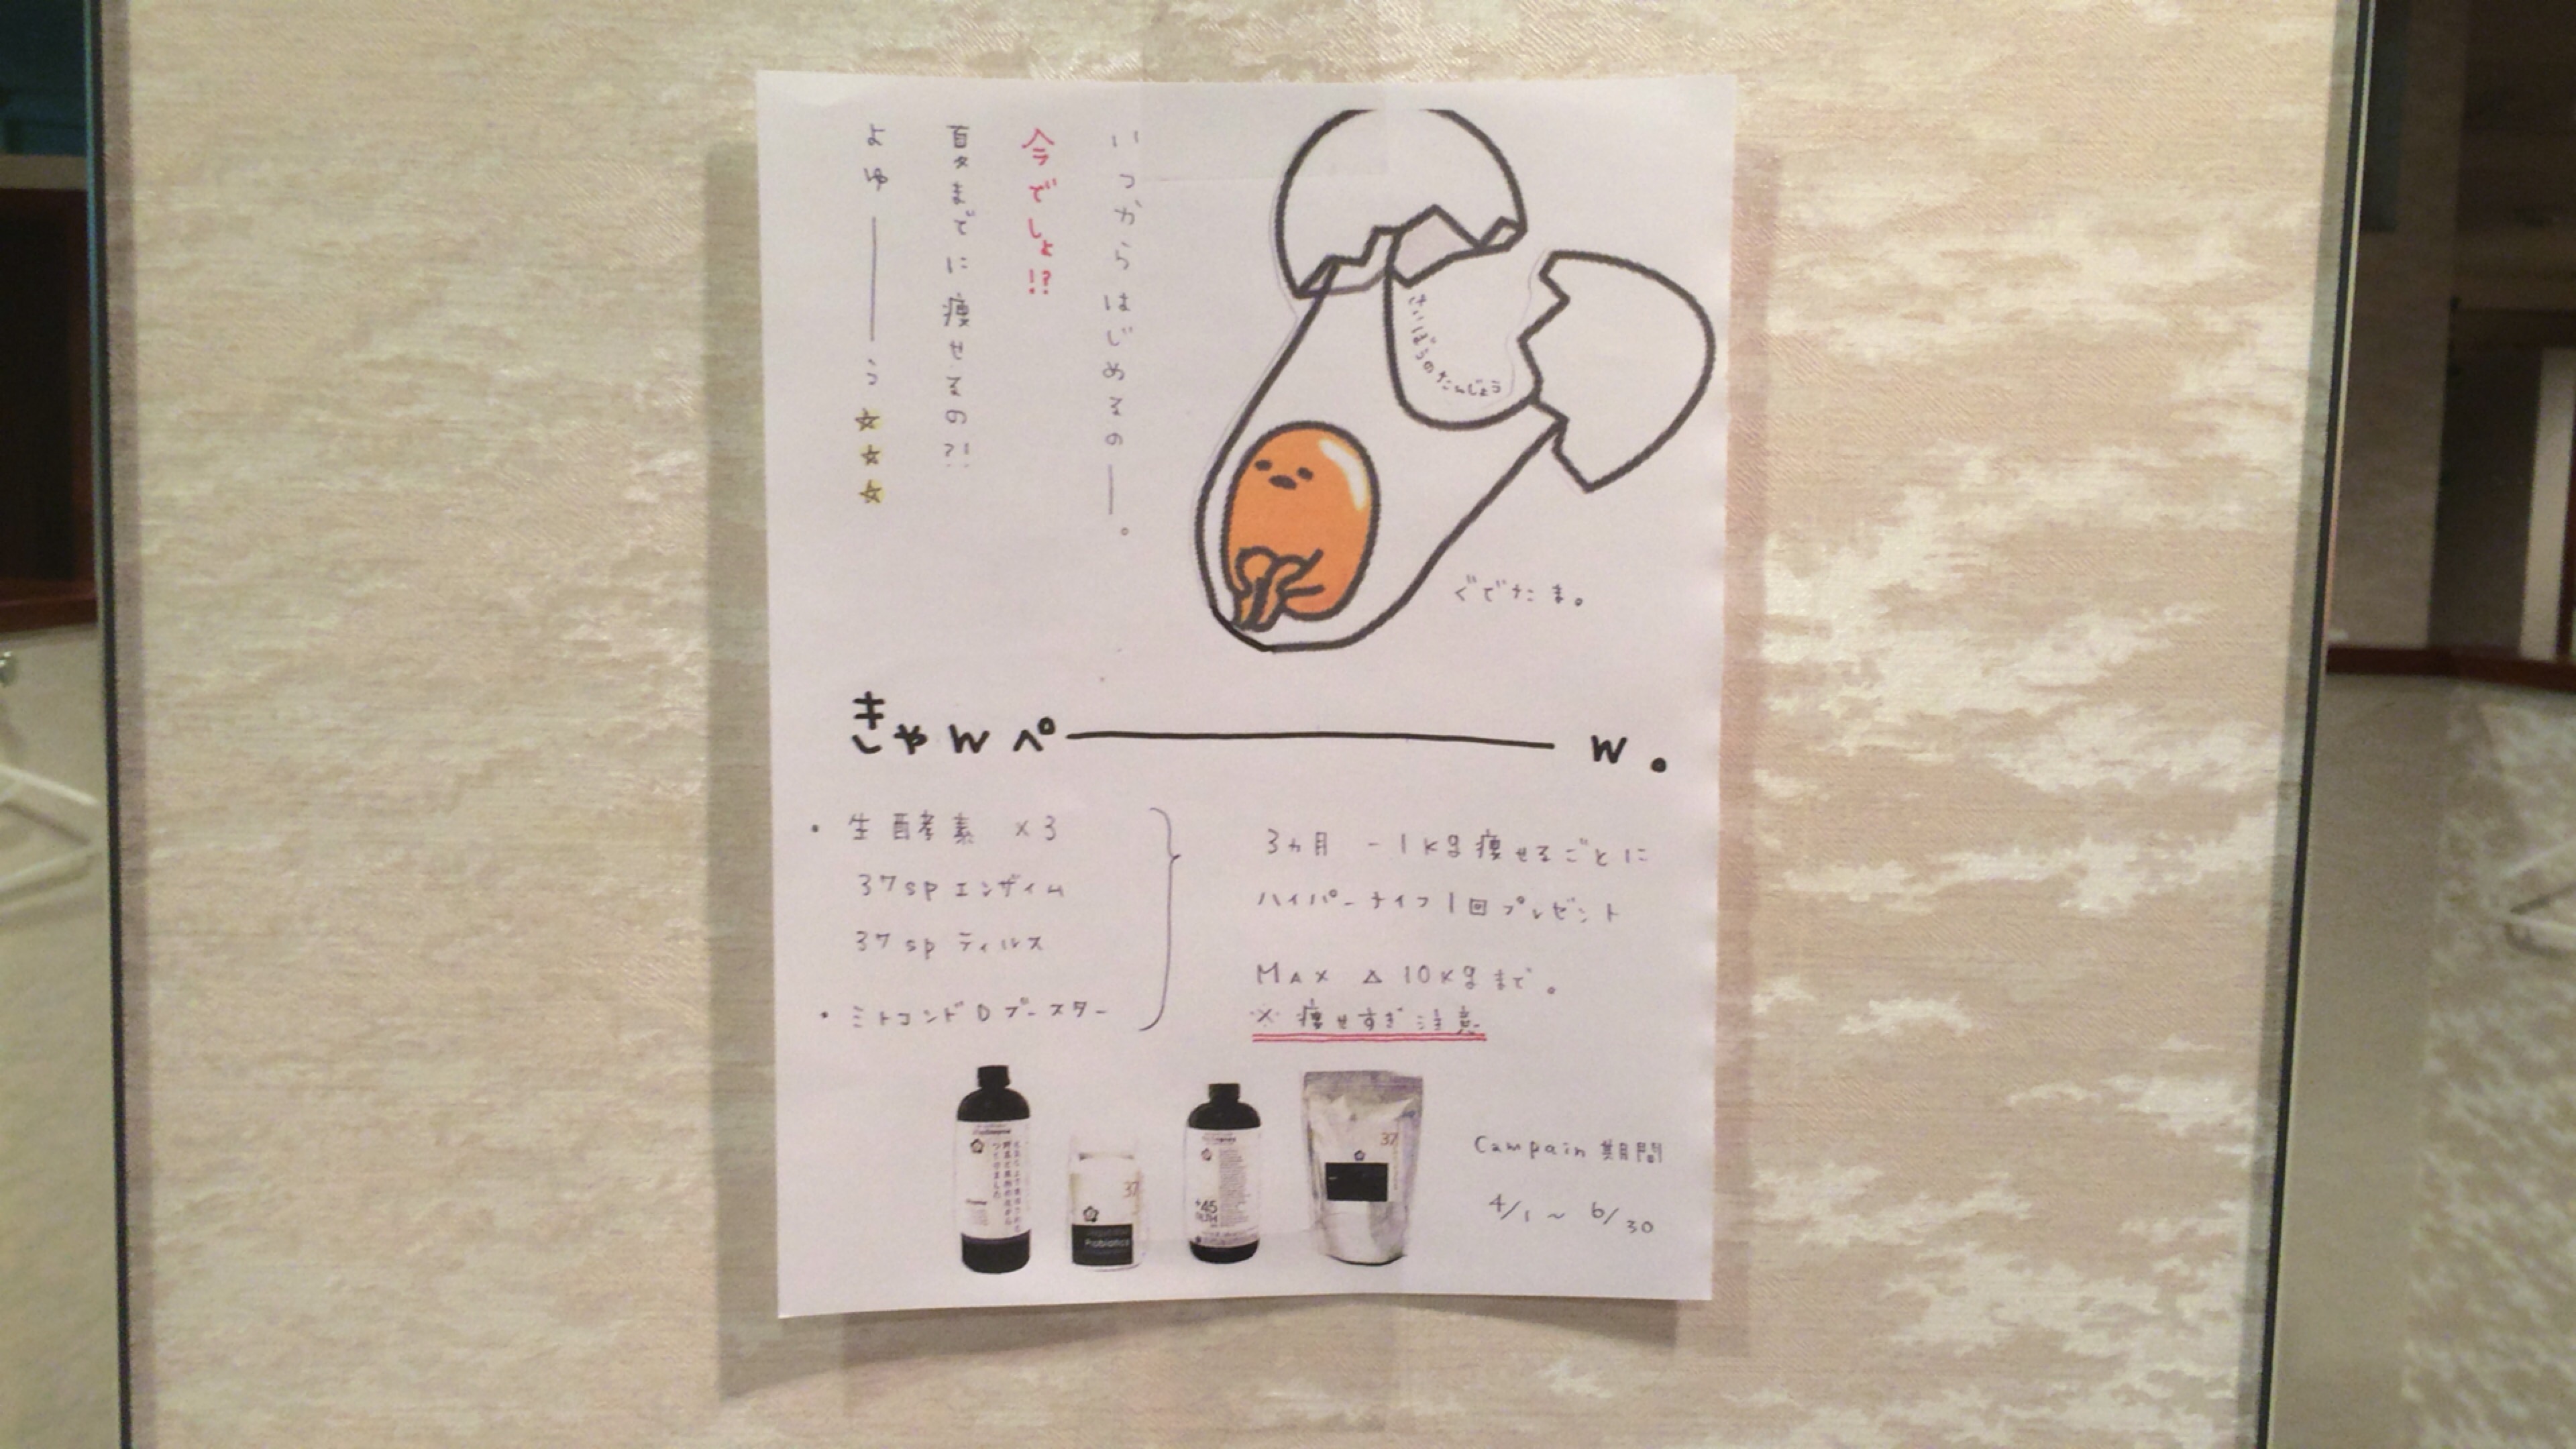 いつからはじめるの―。
今でしょ!?
夏までに痩せるの?!
よゆ――う☆☆☆
さいばらのたんじょう
ぐでたま。
きゃんぺ――ん。
・生酵素 ×3
37sp エンザイム
37sp ティルス
・ミトコンドDブースター
3ヵ月 -1kg痩せるごとに
ハイパーナイフ1回プレゼント
MAX △10kgまで。
※痩せすぎ注意
Campain 期間
4/1 ~ 6/30
37
Probiotics
+45
37